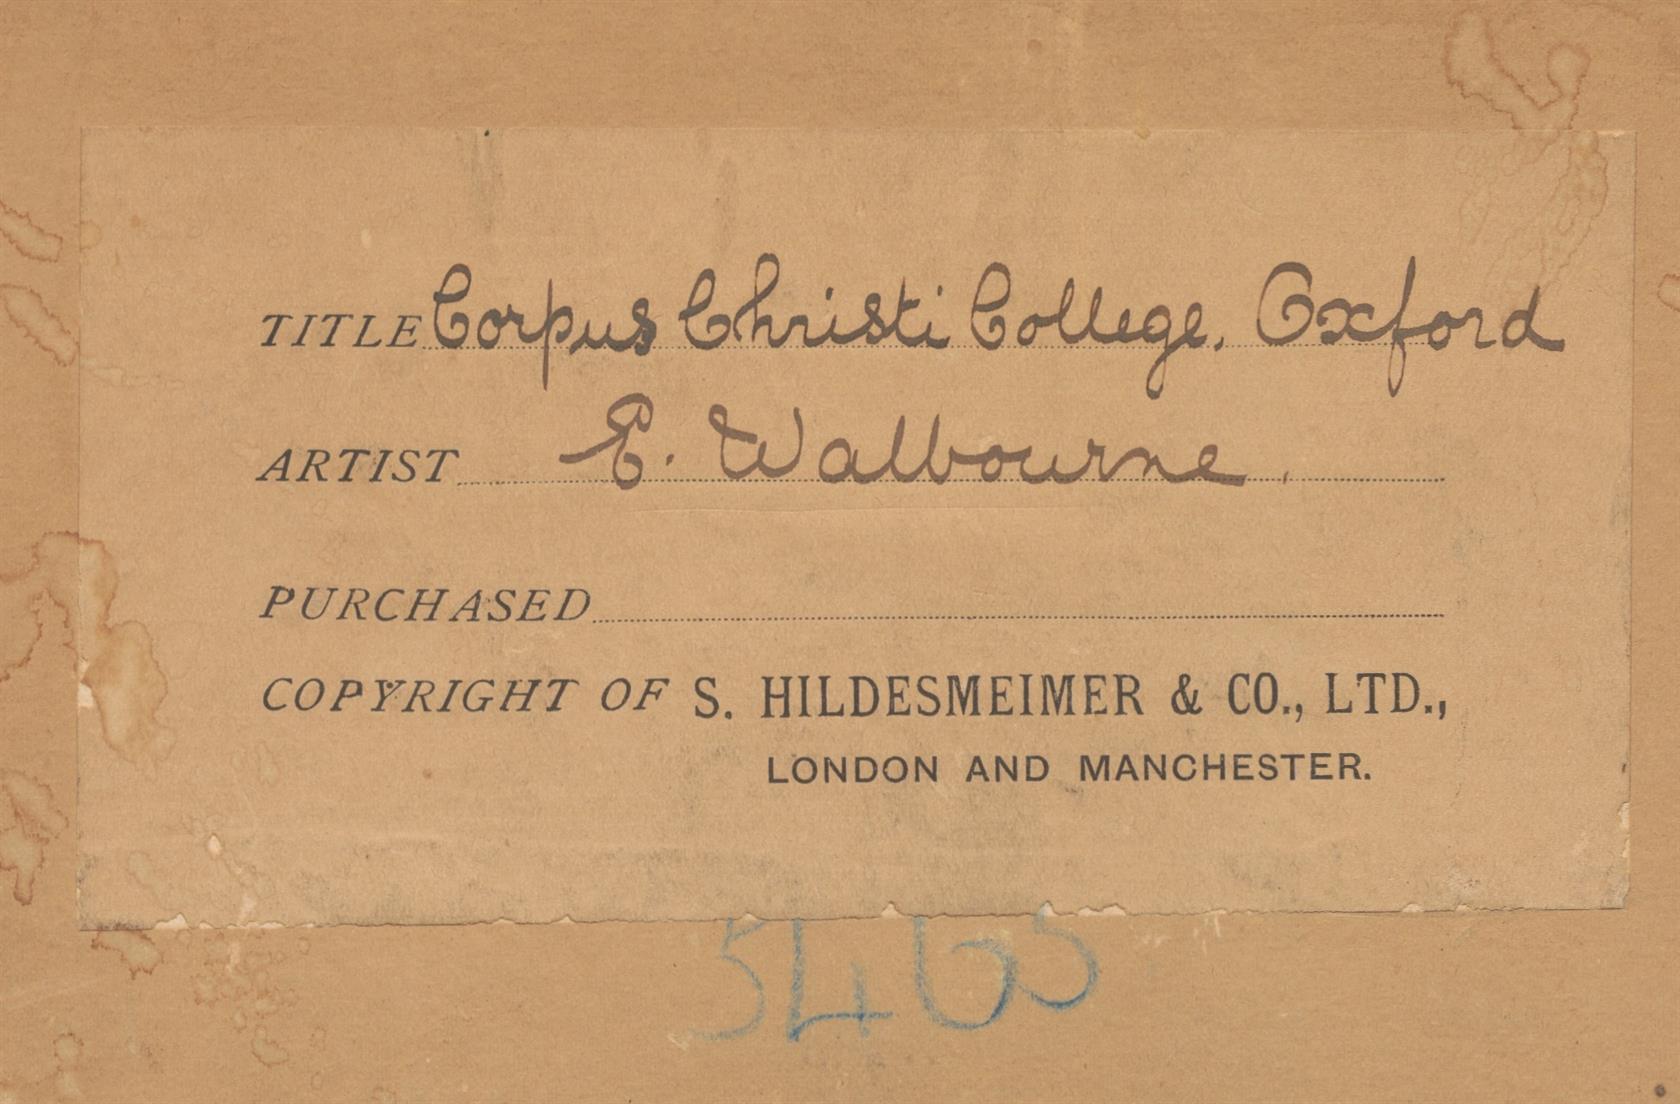 TITLE Corpus Christi College. Oxford
ARTIST E. Walbourne.
PURCHASED
COPYRIGHT OF S. HILDESMEIMER & CO., LTD.,
LONDON AND MANCHESTER.
5465